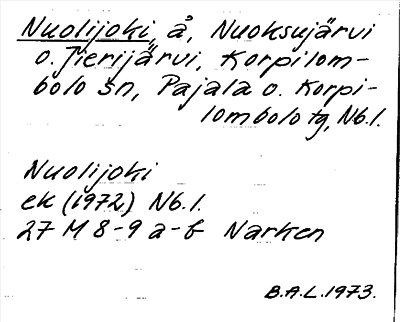 Nuolijoki, å, Nuoksujärvi
o. Jierijärvi, Korpilom-
bolo sn, Pajala o. Korpi-
lombolo tg, Nb.l.
Nuolijoki
ek (1972) Nb.l.
27 M 8-9 a-b Narken
B.A.L. 1973.